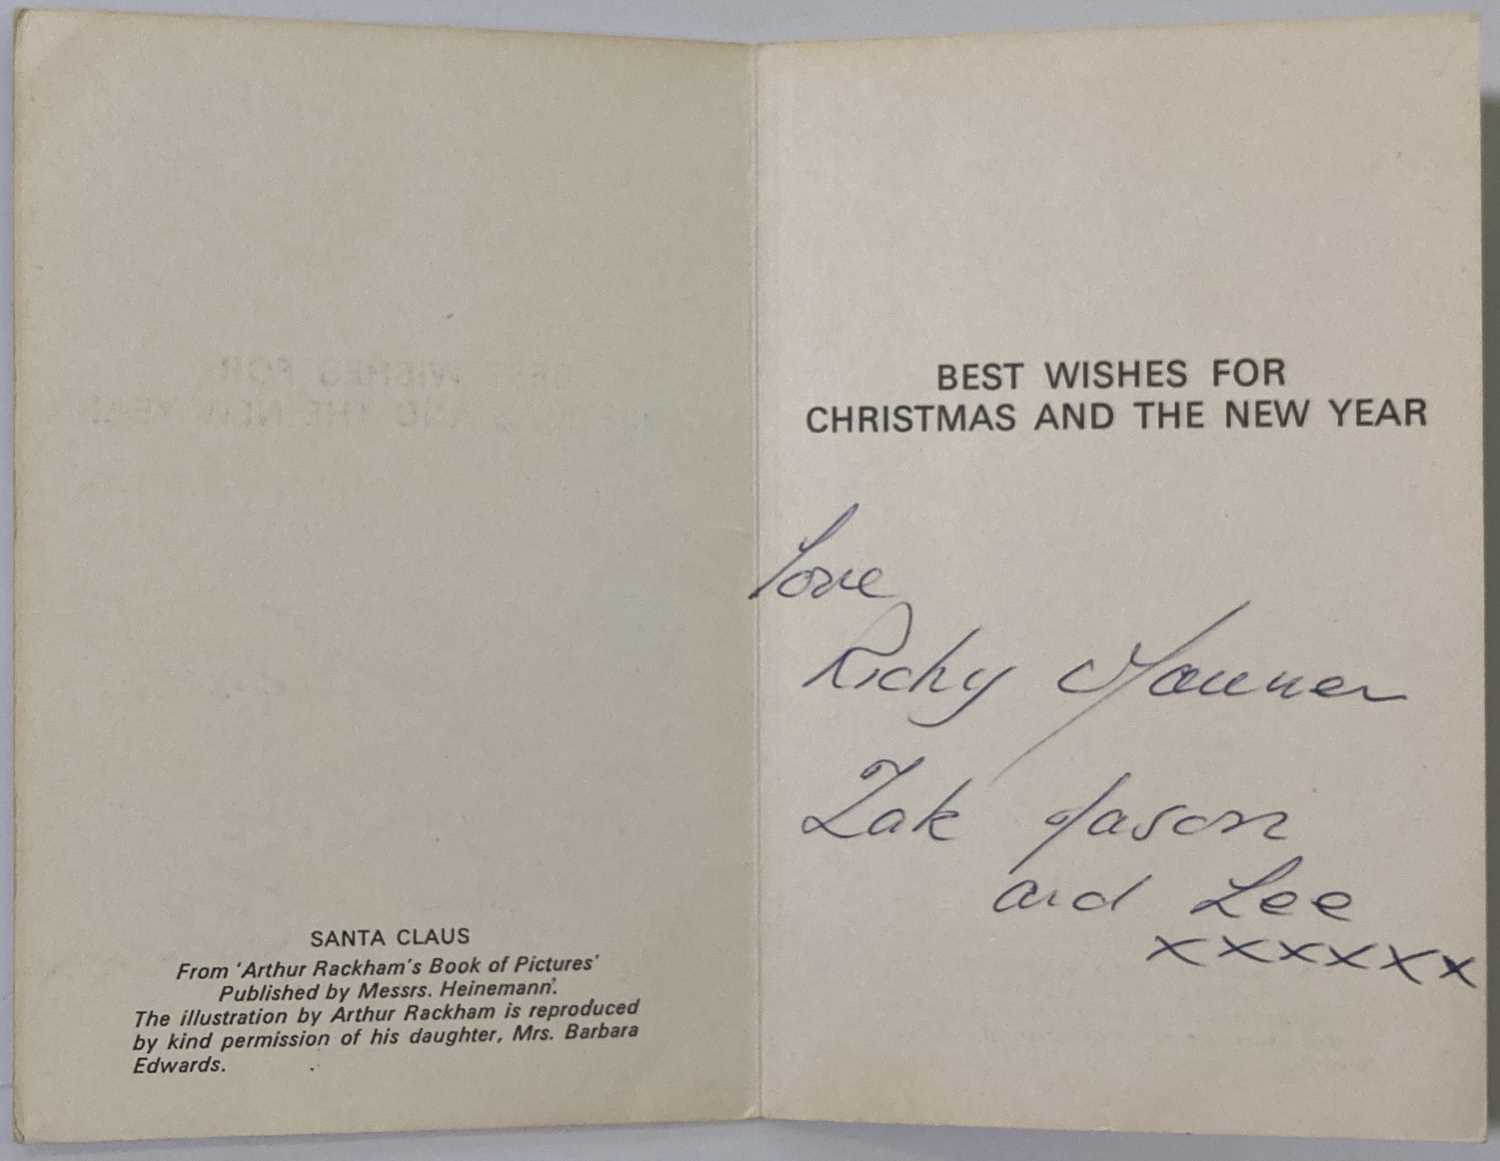 SANTA CLAUS
From 'Arthur Rackham's Book of Pictures'
Published by Messrs. Heinemann'.
The illustration by Arthur Rackham is reproduced
by kind permission of his daughter, Mrs. Barbara
Edwards.
BEST WISHES FOR
CHRISTMAS AND THE NEW YEAR
Love
Richy Maureen
Zak Jason
and Lee
xxxxxx